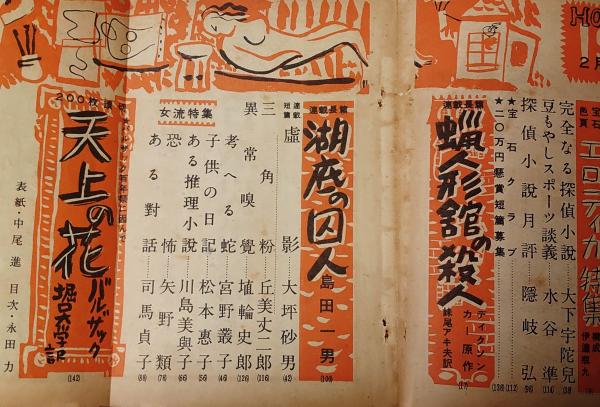 HO
2月
宝石
色頁
エロティカ特集
構成
伊達瓶九
完全なる探偵小説 大下宇陀兒
豆もやしスポーツ談義 水谷準
探偵小説月評 隠岐弘
★宝石クラブ
★二〇万円懸賞短篇募集
連載長篇
蝋人形館の殺人
ディクソン
カー原作
妹尾アキ夫訳
(17)
連載長篇
湖底の囚人
島田一男
(100)
連載
短篇
虚影 大坪砂男 (42)
三角粉 丘美丈二郎 (116)
異常嗅覺 埴輪史郎 (126)
女流特集
考へる蛇 宮野叢子
子供の日記 松本惠子
ある推理小説 川島美與子
恐怖 矢野類
ある對話 司馬貞子
200枚讀切
天上の花
バルザック
堀口大學訳
(142)
表紙・中尾進 目次・永田力